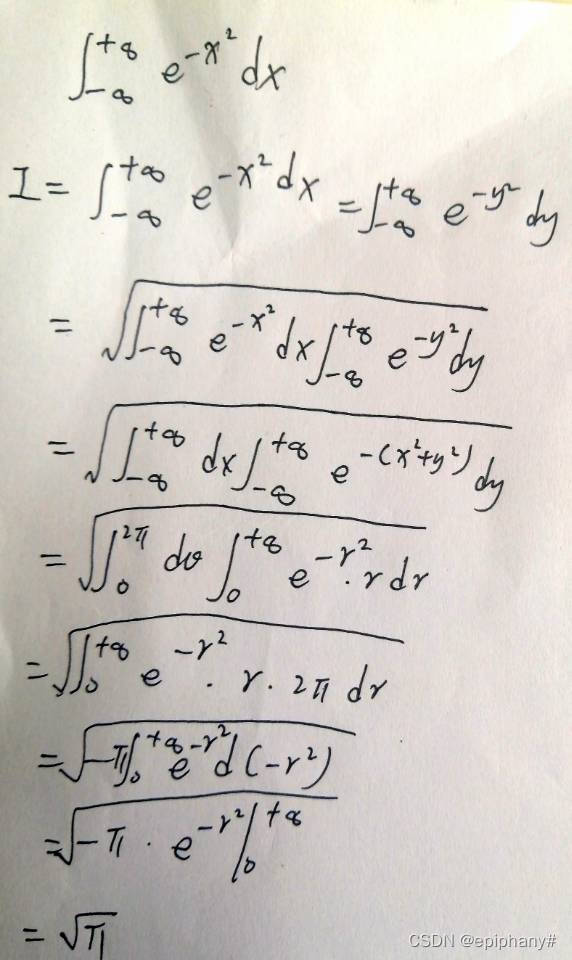 ∫₋∞^{+∞} e^{-x²} dx
I = ∫₋∞^{+∞} e^{-x²} dx = ∫₋∞^{+∞} e^{-y²} dy
= √(∫₋∞^{+∞} e^{-x²} dx ∫₋∞^{+∞} e^{-y²} dy)
= √(∫₋∞^{+∞} dx ∫₋∞^{+∞} e^{-(x²+y²)} dy)
= √(∫₀^{2π} dθ ∫₀^{+∞} e^{-r²} · r dr)
= √(∫₀^{+∞} e^{-r²} · r · 2π dr)
= √(-π∫₀^{+∞} e^{-r²} d(-r²))
= √(-π · e^{-r²} |₀^{+∞})
= √π
CSDN @epiphany#